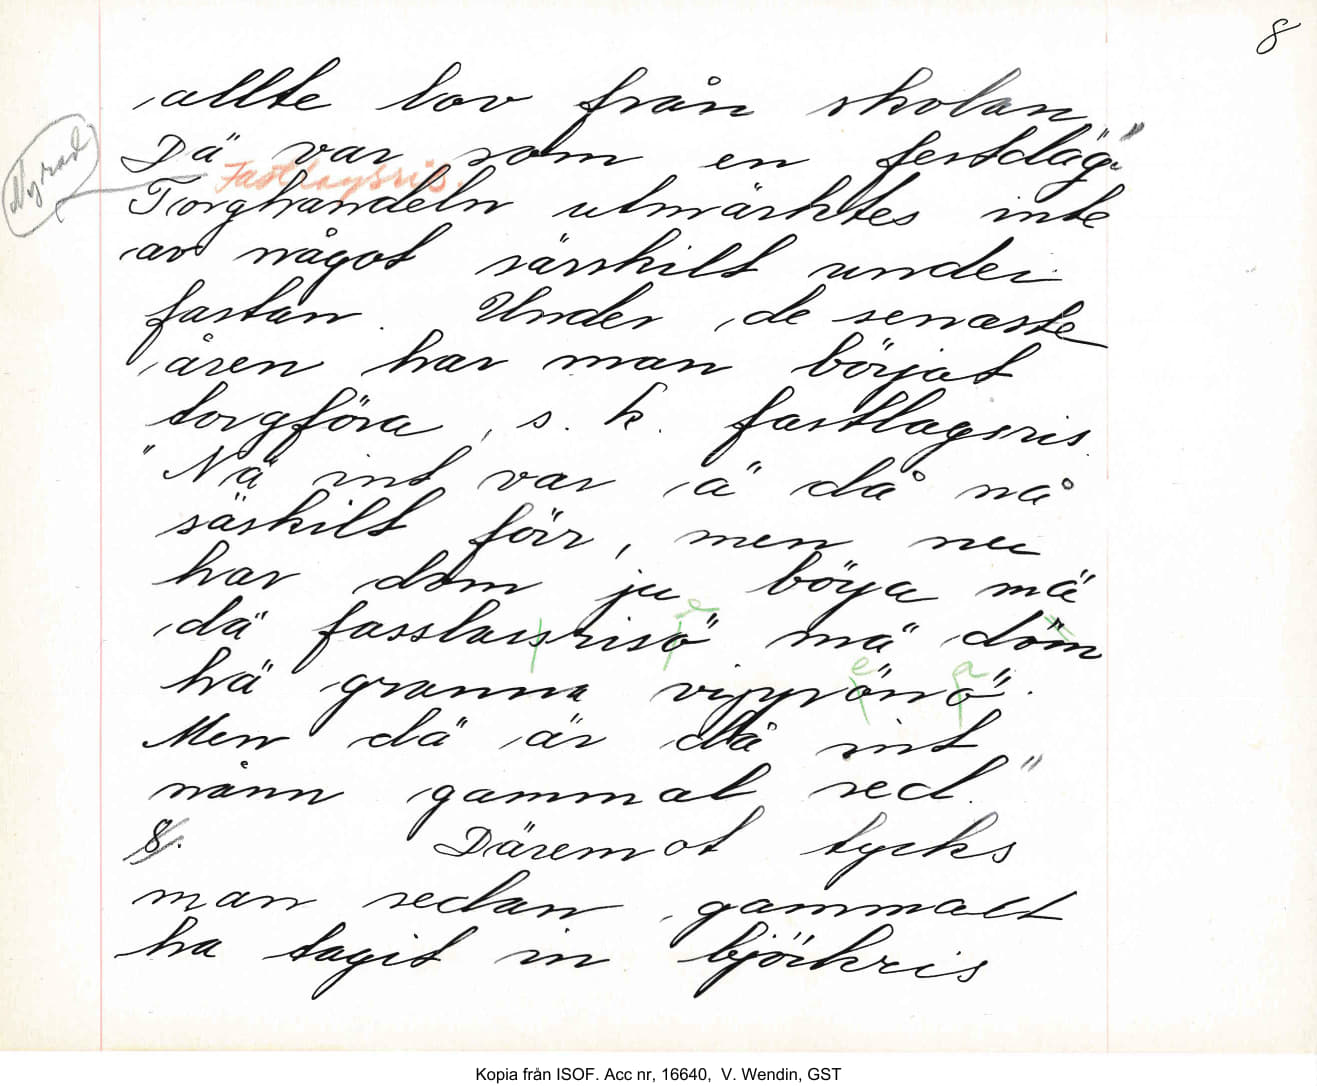 8
allte lov från skolan.
Dä var som en festdag."
Nyrad
Fastlagsris.
Torghandeln utmärktes inte
av något särskilt under
fastan. Under de senaste
åren har man börjat
torgföra s. k. fastlagsris.
"Nä int var ä då nå
säskilt förr, men nu
har dom ju börja mä
dä fasslasrisö mä döm
e
hä granna vippönö".
e a
Men dä är då int
nånn gammal sed."
8. Däremot tycks
man sedan gammalt
ha tagit in björkris
Kopia från ISOF. Acc nr, 16640, V. Wendin, GST